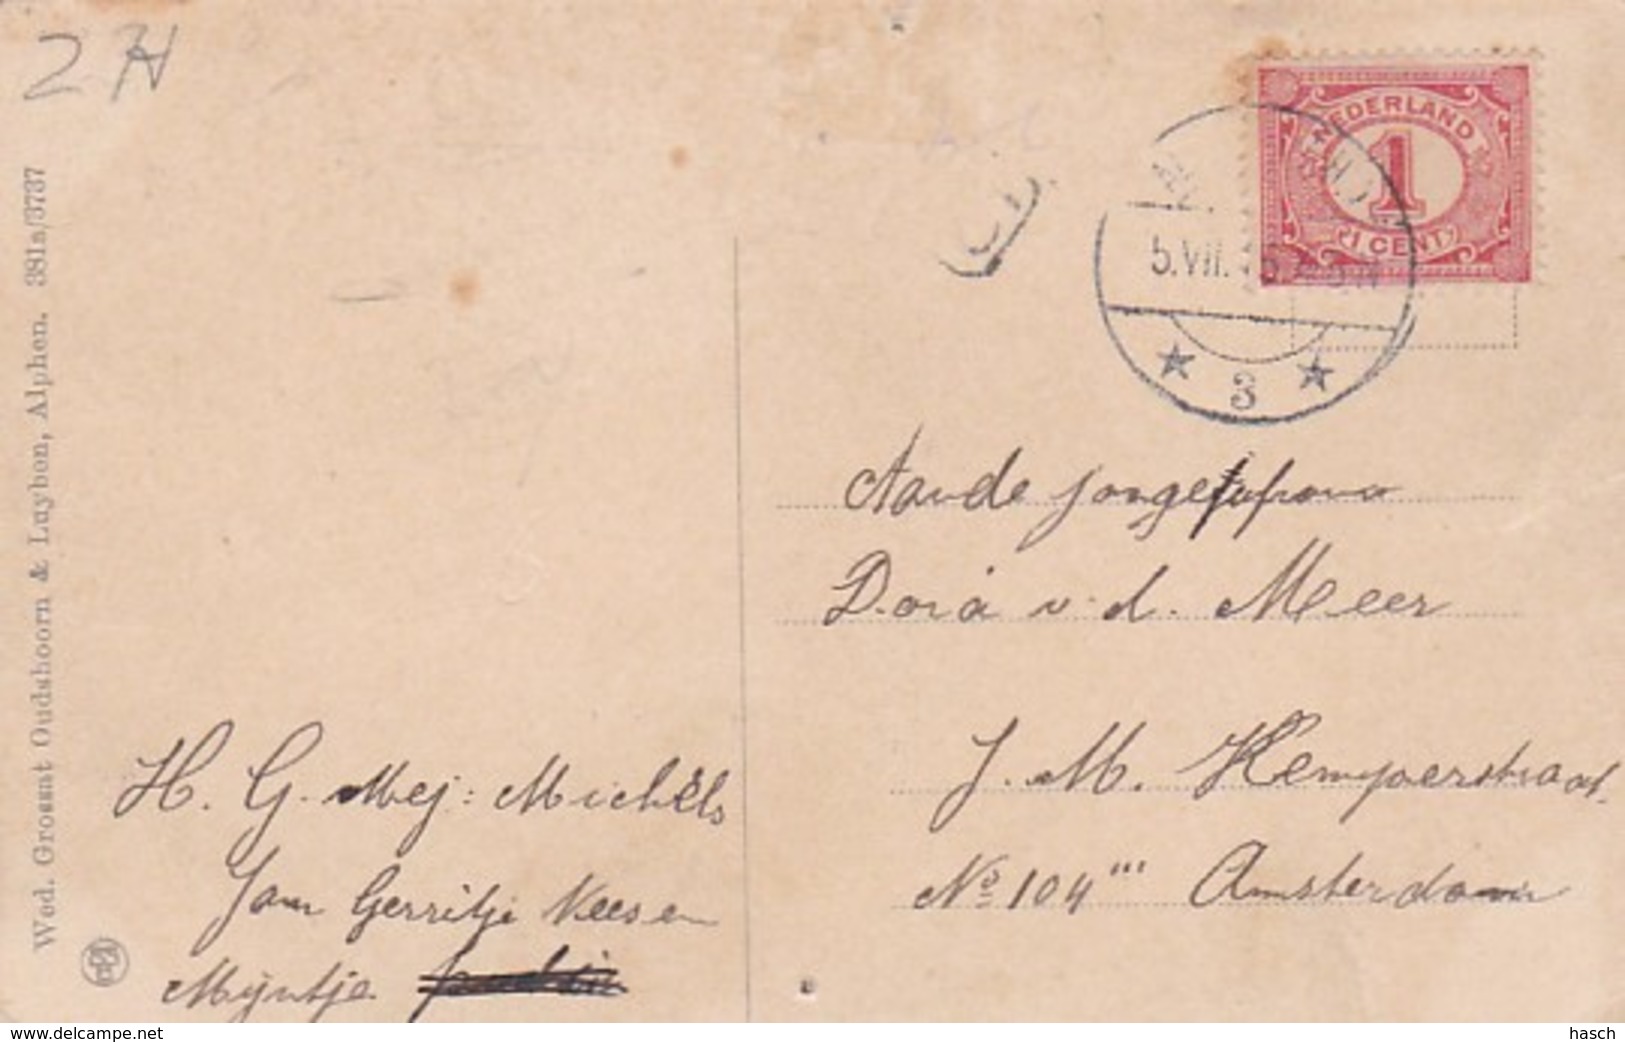 2
Wed. Groesst Oudshoorn & Luybon, Alphen. 381a/3737
NEDERLAND
1
1 CENT
5.VII.
3
Aan de jongejufrouw
Dora v. d. Meer
J. M. Kemperstraat
No 104 ''' Amsterdam
H. G. Mej: Michëls
Jan Gerritje Keesen
Mijntje
www.delcampe.net
hasch